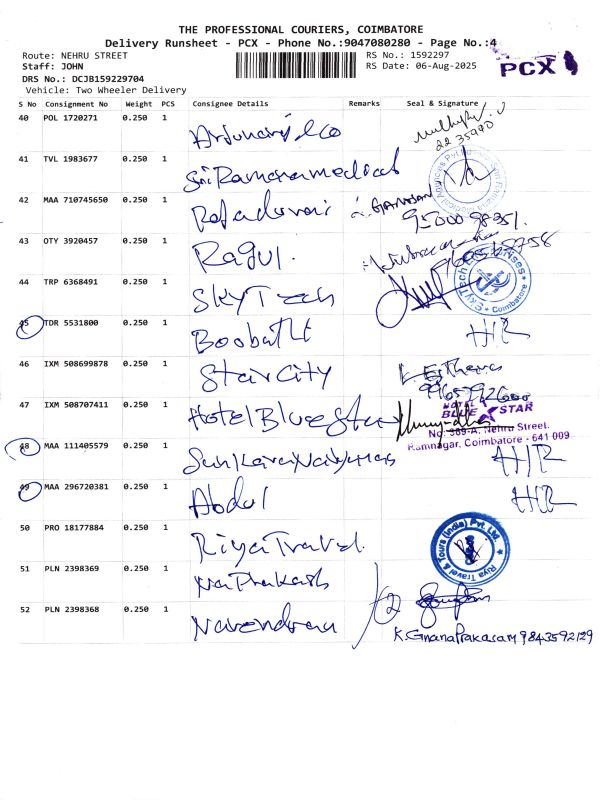 THE PROFESSIONAL COURIERS, COIMBATORE
Delivery Runsheet - PCX - Phone No.:9047080280 - Page No.:4
Route: NEHRU STREET
RS No.: 1592297
Staff: JOHN
RS Date: 06-Aug-2025
PCX
DRS No.: DCJB159229704
Vehicle: Two Wheeler Delivery
S No Consignment No Weight PCS Consignee Details Remarks Seal & Signature
40 POL 1720271 0.250 1
22 35990
41 TVL 1983677 0.250 1 Sri Ramana medical
42 MAA 710745650 0.250 1
95000 98351.
43 OTY 3920457 0.250 1 Ragul.
44 TRP 6368491 0.250 1 Sky Tech
Coimbatore
45 TDR 5531800 0.250 1 HR
46 IXM 508699878 0.250 1 Star City
47 IXM 508707411 0.250 1 Hotel Blue Star
HOTEL BLUE STAR
No. 369-A, Nehru Street.
Ramnagar, Coimbatore - 641 009
48 MAA 111405579 0.250 1 HR
49 MAA 296720381 0.250 1 Abdul HR
50 PRO 18177884 0.250 1 Riya Travel.
Riya Travel & Tours (India) Pvt. Ltd.
51 PLN 2398369 0.250 1
52 PLN 2398368 0.250 1
K. GnanaPrakasam 9843592129